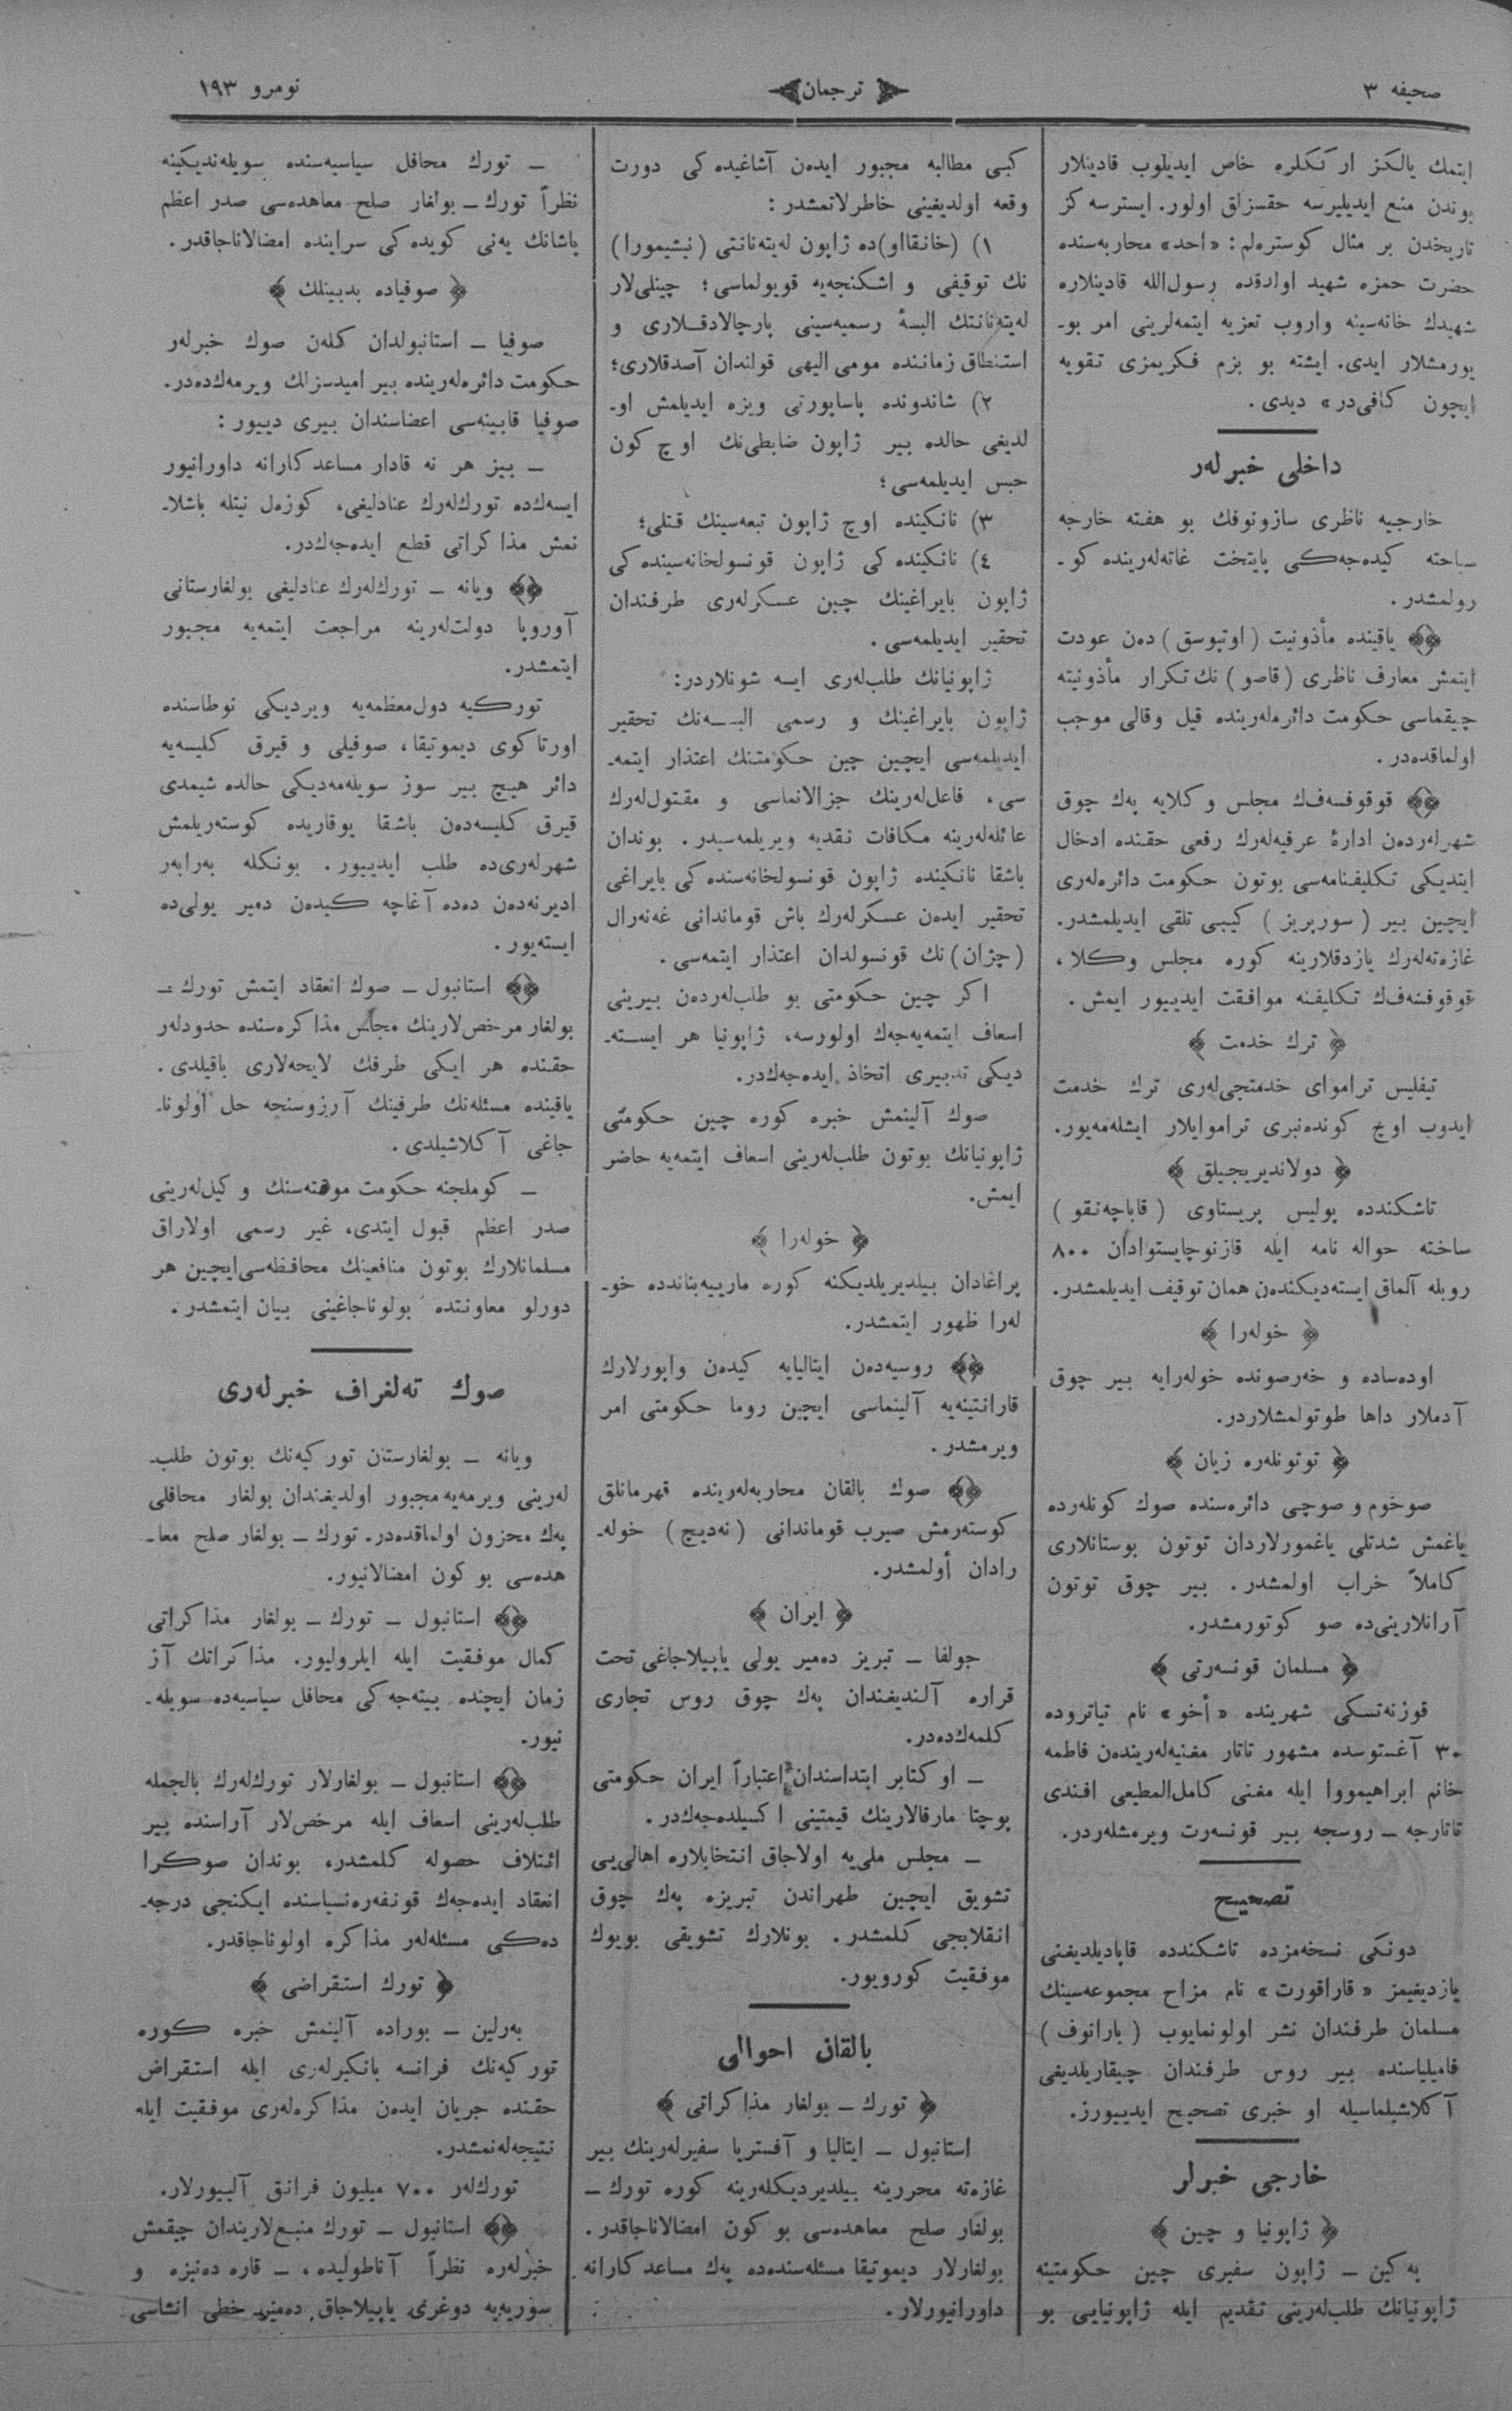 صحیفه ۳
ترجمان
نومرو ۱۹۳
ایتمك یالكز ارككلره خاص ایدیلوب قادینلار
بوندن منع ایدیلیرسه حقسزلق اولور. ایسترسه كز
تاریخدن بر مثال كوسترەلم: «احد» محاربه‌سنده
حضرت حمزه شهید اولدقده رسول‌الله قادینلاره
شهیدك خانه‌سینه واروب تعزیه ایتمه‌لرینی امر بو-
یورمشلار ایدی. ایشته بو بزم فكریمزی تقویه
ایچون كافی‌در» دیدی.
داخلی خبرلەر
خارجیه ناظری سازونوفك بو هفته خارجه
سیاحته كیده‌جه‌كی پایتخت غاته‌لەرینده كو-
رولمشدر.
یاقینده مأذونیت (اوتپوسق) دەن عودت
ایتمش معارف ناظری (قاصو) نك تكرار مأذونیته
چیقماسی حكومت دائرەلەرینده قیل وقالی موجب
اولماقده‌در.
قوقوفسه‌فك مجلس وكلایه پەك چوق
شهرلەردەن ادارۀ عرفیه‌لەرك رفعی حقنده ادخال
ایتدیكی تكلیفنامه‌سی بوتون حكومت دائرەلەری
ایچین بیر (سورپریز) كیبی تلقی ایدیلمشدر.
غازەته‌لەرك یازدقلارینه كوره مجلس وكلا،
قوقوفسه‌فك تكلیفنه موافقت ایدییور ایمش.
﴿ ترك خدمت ﴾
تیفلیس تراموای خدمتجی‌لەری ترك خدمت
ایدوب اوچ كوندەنبری تراموایلار ایشله‌مه‌یور.
﴿ دولاندیریجیلق ﴾
تاشكندده پولیس پریستاوی (قاباچه‌نقو)
ساخته حواله نامه ایله قازنوچایستوادان ۸۰۰
روبله آلماق ایسته‌دیكندەن همان توقیف ایدیلمشدر.
﴿ خولەرا ﴾
اودەساده و خەرصونده خولەرایه بیر چوق
آدملار داها طوتولمشلاردر.
﴿ توتونلەره زیان ﴾
صوخوم و صوچی دائرەسنده صوك كونلەرده
یاغمش شدتلی یاغمورلاردان توتون بوستانلاری
كاملاً خراب اولمشدر. بیر چوق توتون
آرانلارینی‌ده صو كوتورمشدر.
﴿ مسلمان قونسه‌رتی ﴾
قوزنه‌تسكی شهرینده «أخو» نام تیاتروده
۳۰ آغستوسده مشهور تاتار مغنیه‌لەریندەن فاطمه
خانم ابراهیمووا ایله مغنی كامل‌المطیعی افندی
تاتارجه – روسجه بیر قونسه‌رت ویرمشلەردر.
تصحیح
دونكی نسخه‌مزده تاشكندده قاپادیلدیغنی
یازدیغیمز «قاراقورت» نام مزاح مجموعه‌سینك
مسلمان طرفندان نشر اولونمایوب (بارانوف)
فامیلیاسنده بیر روس طرفندان چیقاریلدیغی
آكلاشیلماسیله او خبری تصحیح ایدییورز.
خارجی خبرلر
﴿ ژاپونیا و چین ﴾
پەكین – ژاپون سفیری چین حكومتینه
ژاپونیانك طلب‌لەرینی تقدیم ایله ژاپونیایی بو
كبی مطالبه مجبور ایدەن آشاغیده‌كی دورت
وقعه اولدیغینی خاطرلاتمشدر:
۱) (خانقااو)ده ژاپون لەیته‌نانتی (نیشیمورا)
نك توقیفی و اشكنجه‌یه قویولماسی؛ چینلی‌لار
لەیته‌نانتك البسۀ رسمیه‌سینی پارچالادقلاری و
استنطاق زماننده مومی الیهی قولندان آصدقلاری؛
۲) شاندونده پاساپورتی ویزه ایدیلمش او-
لدیغی حالده بیر ژاپون ضابطی‌نك اوچ كون
حبس ایدیلمه‌سی؛
۳) نانكینده اوچ ژاپون تبعه‌سینك قتلی؛
٤) نانكینده‌كی ژاپون قونسولخانه‌سینده‌كی
ژاپون بایراغینك چین عسكرلەری طرفندان
تحقیر ایدیلمه‌سی.
ژاپونیانك طلب‌لەری ایسه شونلاردر:
ژاپون بایراغینك و رسمی البسه‌نك تحقیر
ایدیلمه‌سی ایچین چین حكومتنك اعتذار ایتمه-
سی، فاعل‌لەرینك جزالانماسی و مقتول‌لەرك
عائله‌لەرینه مكافات نقدیه ویریلمه‌سیدر. بوندان
باشقا نانكینده ژاپون قونسولخانه‌سنده‌كی بایراغی
تحقیر ایدەن عسكرلەرك باش قوماندانی غەنەرال
(چژان) نك قونسولدان اعتذار ایتمه‌سی.
اكر چین حكومتی بو طلب‌لەردەن بیرینی
اسعاف ایتمه‌یه‌جه‌ك اولورسه، ژاپونیا هر ایسته-
دیكی تدبیری اتخاذ ایده‌جه‌كدر.
صوك آلینمش خبره كوره چین حكومتی
ژاپونیانك بوتون طلب‌لەرینی اسعاف ایتمه‌یه حاضر
ایمش.
﴿ خولەرا ﴾
پراغادان بیلدیریلدیكنه كوره مارییه‌بتانده خو-
لەرا ظهور ایتمشدر.
روسیه‌دەن ایتالیایه كیدەن واپورلارك
قارانتینه‌یه آلینماسی ایچین روما حكومتی امر
ویرمشدر.
صوك بالقان محاربه‌لەرینده قهرمانلق
كوستەرمش صیرب قوماندانی (نەدیچ) خولە-
رادان أولمشدر.
﴿ ایران ﴾
جولفا – تبریز دەمیر یولی یاپیلاجاغی تحت
قراره آلندیغندان پەك چوق روس تجاری
كلمه‌كده‌در.
– اوكتابر ابتداسندان اعتباراً ایران حكومتی
پوچتا مارقالارینك قیمتینی اكسیلده‌جه‌كدر.
– مجلس ملی‌یه اولاجاق انتخابلاره اهالی‌یی
تشویق ایچین طهراندن تبریزه پەك چوق
انقلابجی كلمشدر. بونلارك تشویقی بویوك
موفقیت كورویور.
بالقان احوالی
﴿ تورك – بولغار مذاكراتی ﴾
استانبول – ایتالیا و آفستریا سفیرلەرینك بیر
غازەته محررینه بیلدیردیكلەرینه كوره تورك –
بولغار صلح معاهده‌سی بو كون امضالاناجاقدر.
بولغارلار دیموتیقا مسئله‌سنده‌ده پەك مساعدكارانه
داورانیورلار.
– تورك محافل سیاسیه‌سنده سویله‌ندیكینه
نظراً تورك – بولغار صلح معاهده‌سی صدر اعظم
پاشانك یەنی كویده‌كی سراینده امضالاناجاقدر.
﴿ صوفیاده بدبینلك ﴾
صوفیا – استانبولدان كلەن صوك خبرلەر
حكومت دائرەلەرینده بیر امیدسزلك ویرمه‌كده‌در.
صوفیا قابینه‌سی اعضاسندان بیری دییور:
– بیز هر نه قادار مساعدكارانه داورانیور
ایسه‌كده تورك‌لەرك عنادلیغی، كوزەل نیتله باشلا-
نمش مذاكراتی قطع ایده‌جه‌كدر.
ویانه – تورك‌لەرك عنادلیغی بولغارستانی
آوروپا دولت‌لەرینه مراجعت ایتمه‌یه مجبور
ایتمشدر.
توركیه دول‌معظمه‌یه ویردیكی نوطاسنده
اورتاكوی دیموتیقا، صوفیلی و قیرق كلیسه‌یه
دائر هیچ بیر سوز سویله‌مه‌دیكی حالده شیمدی
قیرق كلیسه‌دەن باشقا یوقاریده كوستەریلمش
شهرلەری‌ده طلب ایدییور. بونكله بەرابەر
ادیرنه‌دەن دەده آغاچه كیدەن دەمیر یولی‌ده
ایسته‌یور.
استانبول – صوك انعقاد ایتمش تورك –
بولغار مرخص‌لارینك مجلس مذاكره‌سنده حدودلەر
حقنده هر ایكی طرفك لایحه‌لاری باقیلدی.
یاقینده مسئله‌نك طرفینك آرزوسنجه حل اولونا-
جاغی آكلاشیلدی.
– كوملجنه حكومت موقته‌سنك وكیل‌لەرینی
صدر اعظم قبول ایتدی، غیر رسمی اولاراق
مسلمانلارك بوتون منافعینك محافظه‌سی‌ایچین هر
دورلو معاونتده بولوناجاغینی بیان ایتمشدر.
صوك تەلغراف خبرلەری
ویانه – بولغارستان توركیه‌نك بوتون طلب-
لەرینی ویرمه‌یه مجبور اولدیغندان بولغار محافلی
پەك محزون اولماقده‌در. تورك – بولغار صلح معا-
هده‌سی بو كون امضالانیور.
استانبول – تورك – بولغار مذاكراتی
كمال موفقیت ایله ایلرولیور. مذاكراتك آز
زمان ایچنده بیته‌جه‌كی محافل سیاسیه‌ده سویله-
نیور.
استانبول – بولغارلار تورك‌لەرك بالجمله
طلب‌لەرینی اسعاف ایله مرخص‌لار آراسنده بیر
ائتلاف حصوله كلمشدر، بوندان صوكرا
انعقاد ایده‌جه‌ك قونفه‌رەنسیاسنده ایكنجی درجه-
ده‌كی مسئله‌لەر مذاكره اولوناجاقدر.
﴿ تورك استقراضی ﴾
بەرلین – بوراده آلینمش خبره كوره
توركیه‌نك فرانسه بانكیرلەری ایله استقراض
حقنده جریان ایدەن مذاكرەلەری موفقیت ایله
نتیجه‌لەنمشدر.
تورك‌لەر ۷۰۰ میلیون فرانق آلییورلار.
استانبول – تورك منبع‌لاریندان چیقمش
خبرلەره نظراً آناطولیده، – قاره دەنیزه و
سوریه‌یه دوغری یاپیلاجاق دەمیر خطی انشاسی